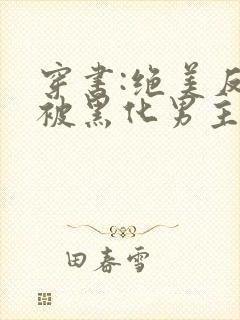 穿书:绝美反
被黑化男主
田春雪